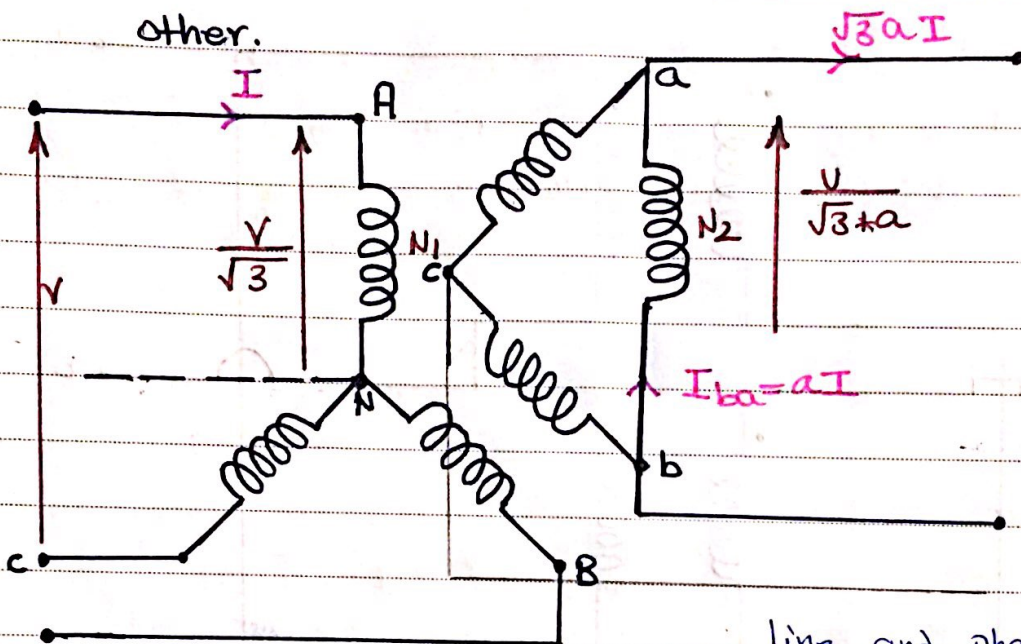 other.
√3 a I
I
A
a
V
V/√3
N1
N2
V/√3*a
c
N
Iba=aI
b
c
B
line and pha